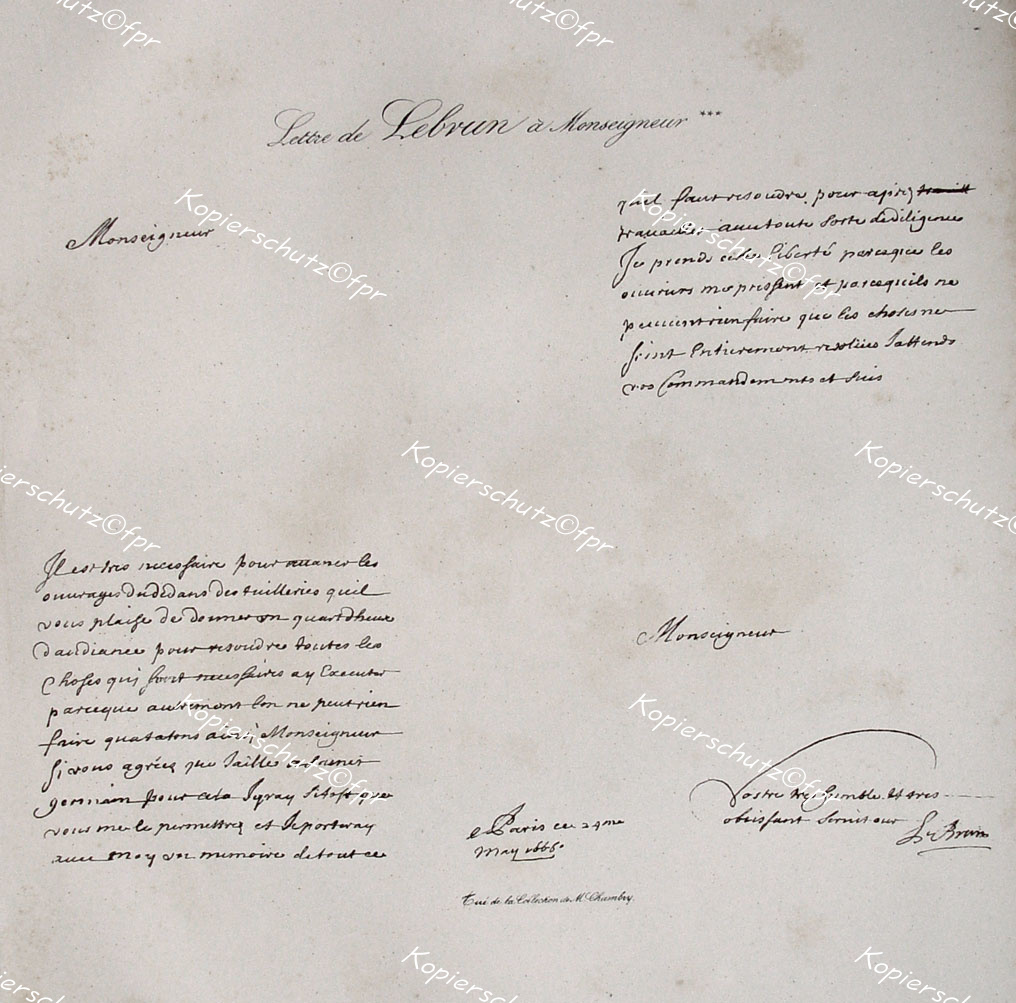 Lettre de Lebrun à Monseigneur ***
Monseigneur
Il est tres necessaire pour auancer les
ouurages dudedans des tuilleries quil
vous plaise de donner un quart dheure
daudiance pour resoudre toutes les
choses qui sont necessaires ay Executer
parceque autrement lon ne peut rien
faire qua tatons ainsi Monseigneur
si vous agréez que jaille a saint
germain pour cela Jyray sitost que
vous me le permettrez et Je porteray
auec moy un memoire de tout ce
quil faut resoudre pour apres
trauailler auec toute sorte de diligence
Je prends cette liberté parceque les
ouuriers me pressent et parcequils ne
peuuent rien faire que les choses ne
soint Entierement resolües Jattends
vos Commandements et suis
Monseigneur
Vostre tres humble et tres
obeissant seruiteur
Le Brun
Paris ce 24me
May 1666.
Tiré de la Collection de Mr Chambry.
Kopierschutz©fpr